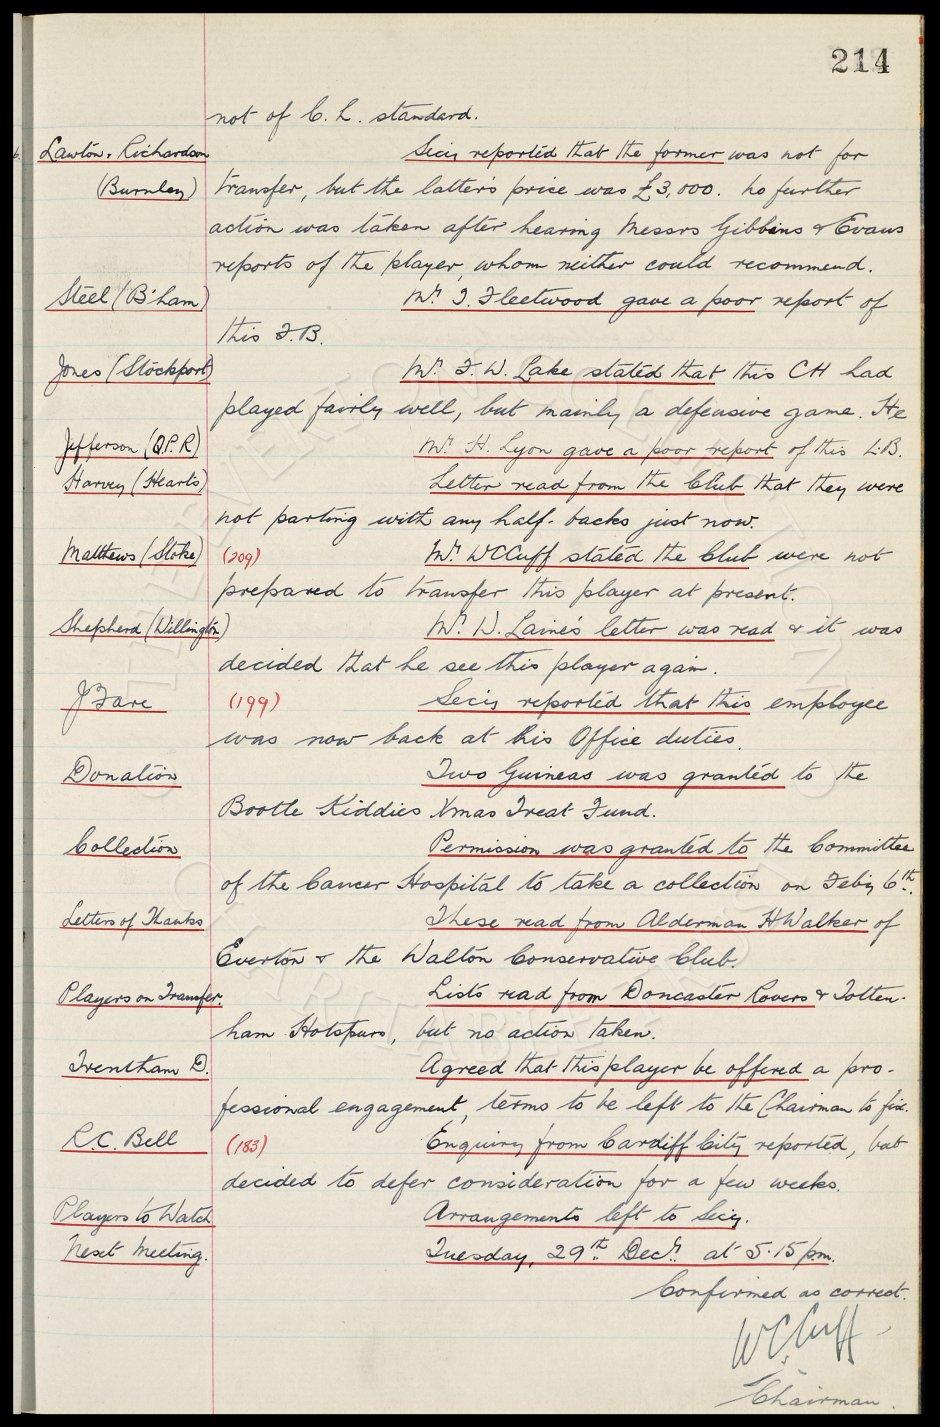 214
not of C. L. standard.
Lawton & Richardson Secy reported that the former was not for
(Burnley) transfer, but the latter's price was £3,000. No further
action was taken after hearing Messrs Gibbins & Evans
reports of the player, whom neither could recommend.
Steel (B'ham) Mr. T. Fleetwood gave a poor report of
this F.B.
Jones (Stockport) Mr. F. W. Lake stated that this CH had
played fairly well, but mainly a defensive game. He
Jefferson (Q.P.R) Mr. H. Lyon gave a poor report of this L.B.
Harvey (Hearts) Letter read from the Club that they were
not parting with any half-backs just now.
Matthews (Stoke) (209) Mr. WCCuff stated the Club were not
prepared to transfer this player at present.
Shepherd (Willington) Mr. W. Laine's letter was read & it was
decided that he see this player again.
J Fare (199) Secy reported that this employee
was now back at his Office duties.
Donation Two Guineas was granted to the
Bootle Kiddies Xmas Treat Fund.
Collection Permission was granted to the Committee
of the Cancer Hospital to take a collection on Feby 6th.
Letters of Thanks These read from Alderman H Walker of
Everton & the Walton Conservative Club.
Players on Transfer. Lists read from Doncaster Rovers & Totten-
ham Hotspurs, but no action taken.
Trentham D. Agreed that this player be offered a pro-
fessional engagement, terms to be left to the Chairman to fix.
R.C. Bell (183) Enquiry from Cardiff City reported, but
decided to defer consideration for a few weeks.
Players to Watch Arrangements left to Secy.
Next Meeting. Tuesday, 29th Decr. at 5.15 pm.
Confirmed as correct.
WC Cuff
Chairman.